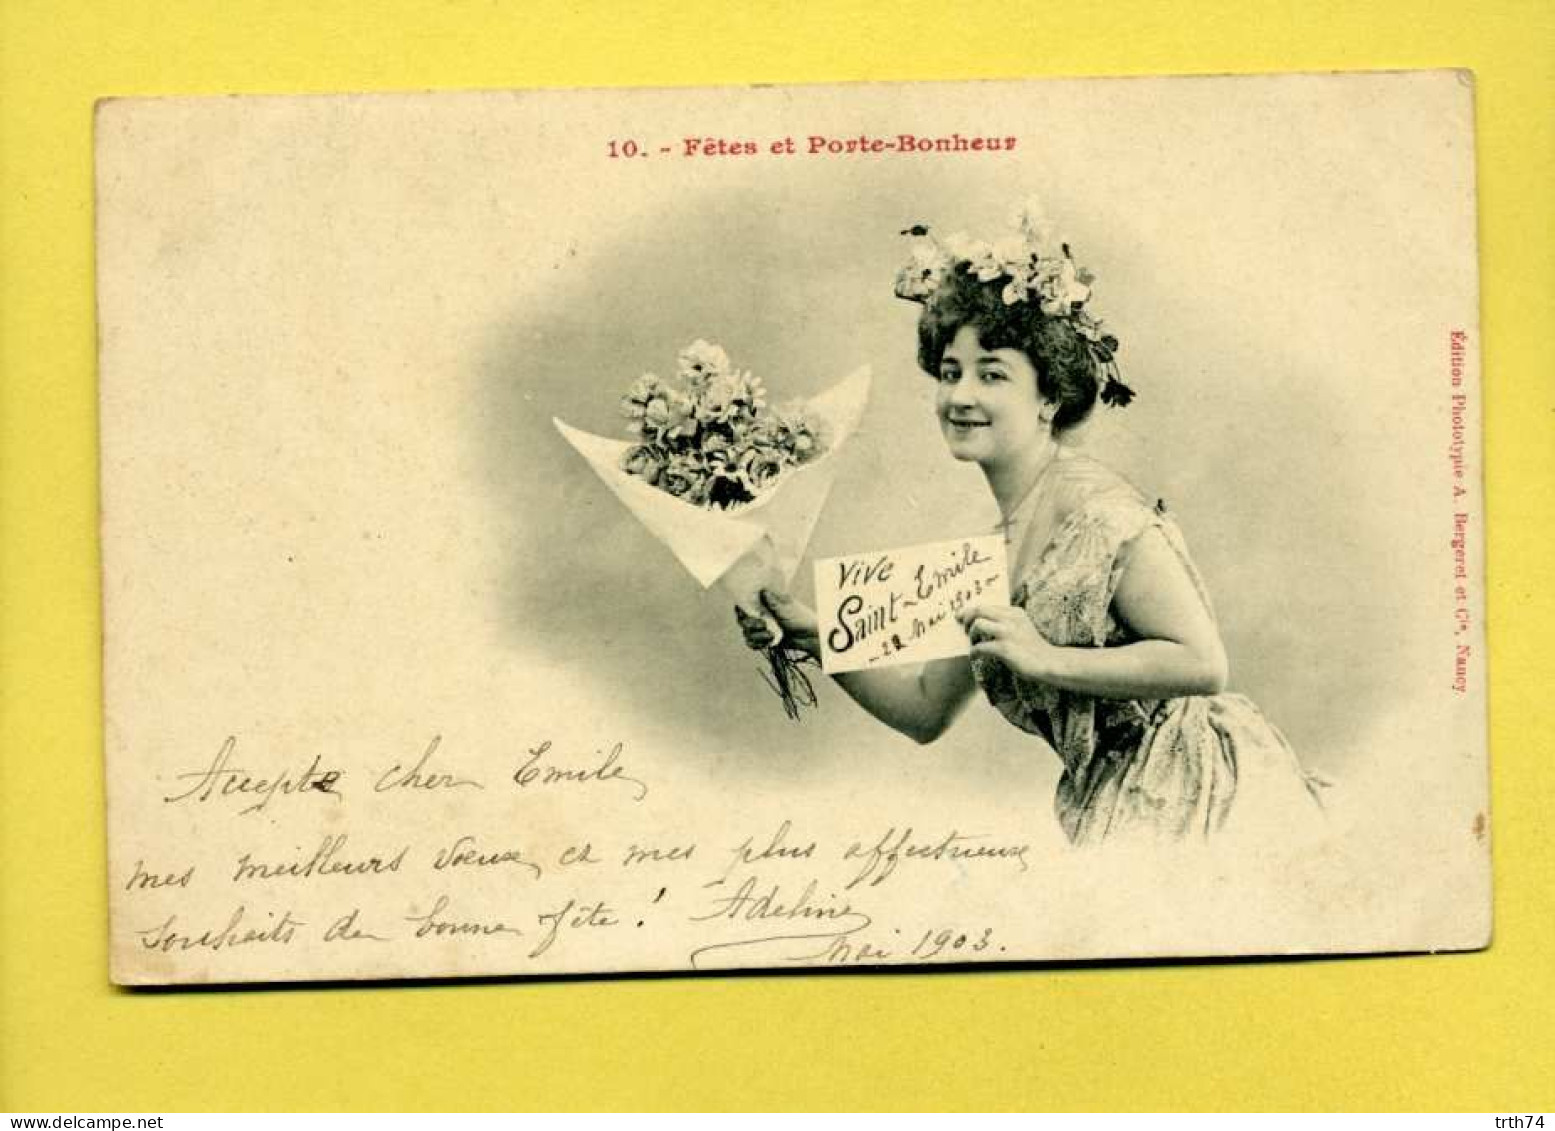 10. - Fêtes et Porte-Bonheur
Vive
Saint-Emile
- 22 Mai 1903 -
Édition Phototypie A. Bergeret et Cie, Nancy
Accepte cher Emile
mes meilleurs vœux et mes plus affectueux
souhaits de bonne fête ! Adeline
Mai 1903.
delcampe.net
trth74